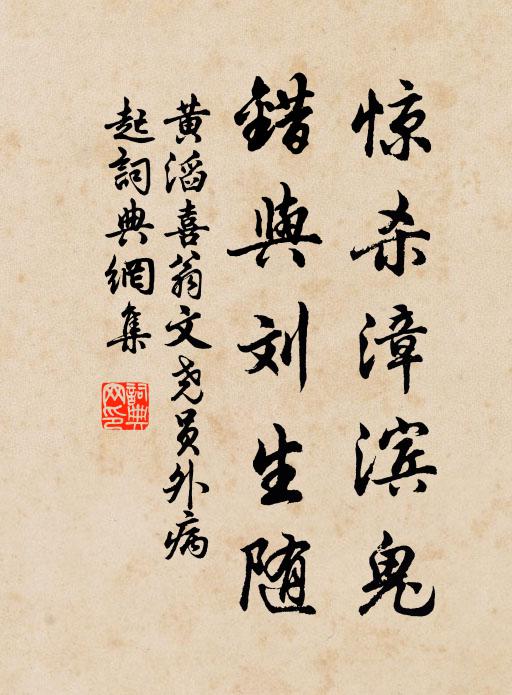 惊杀漳滨鬼
錯與刘生随
黄滔喜翁文尧员外病
起詞典網集
詞典
网印